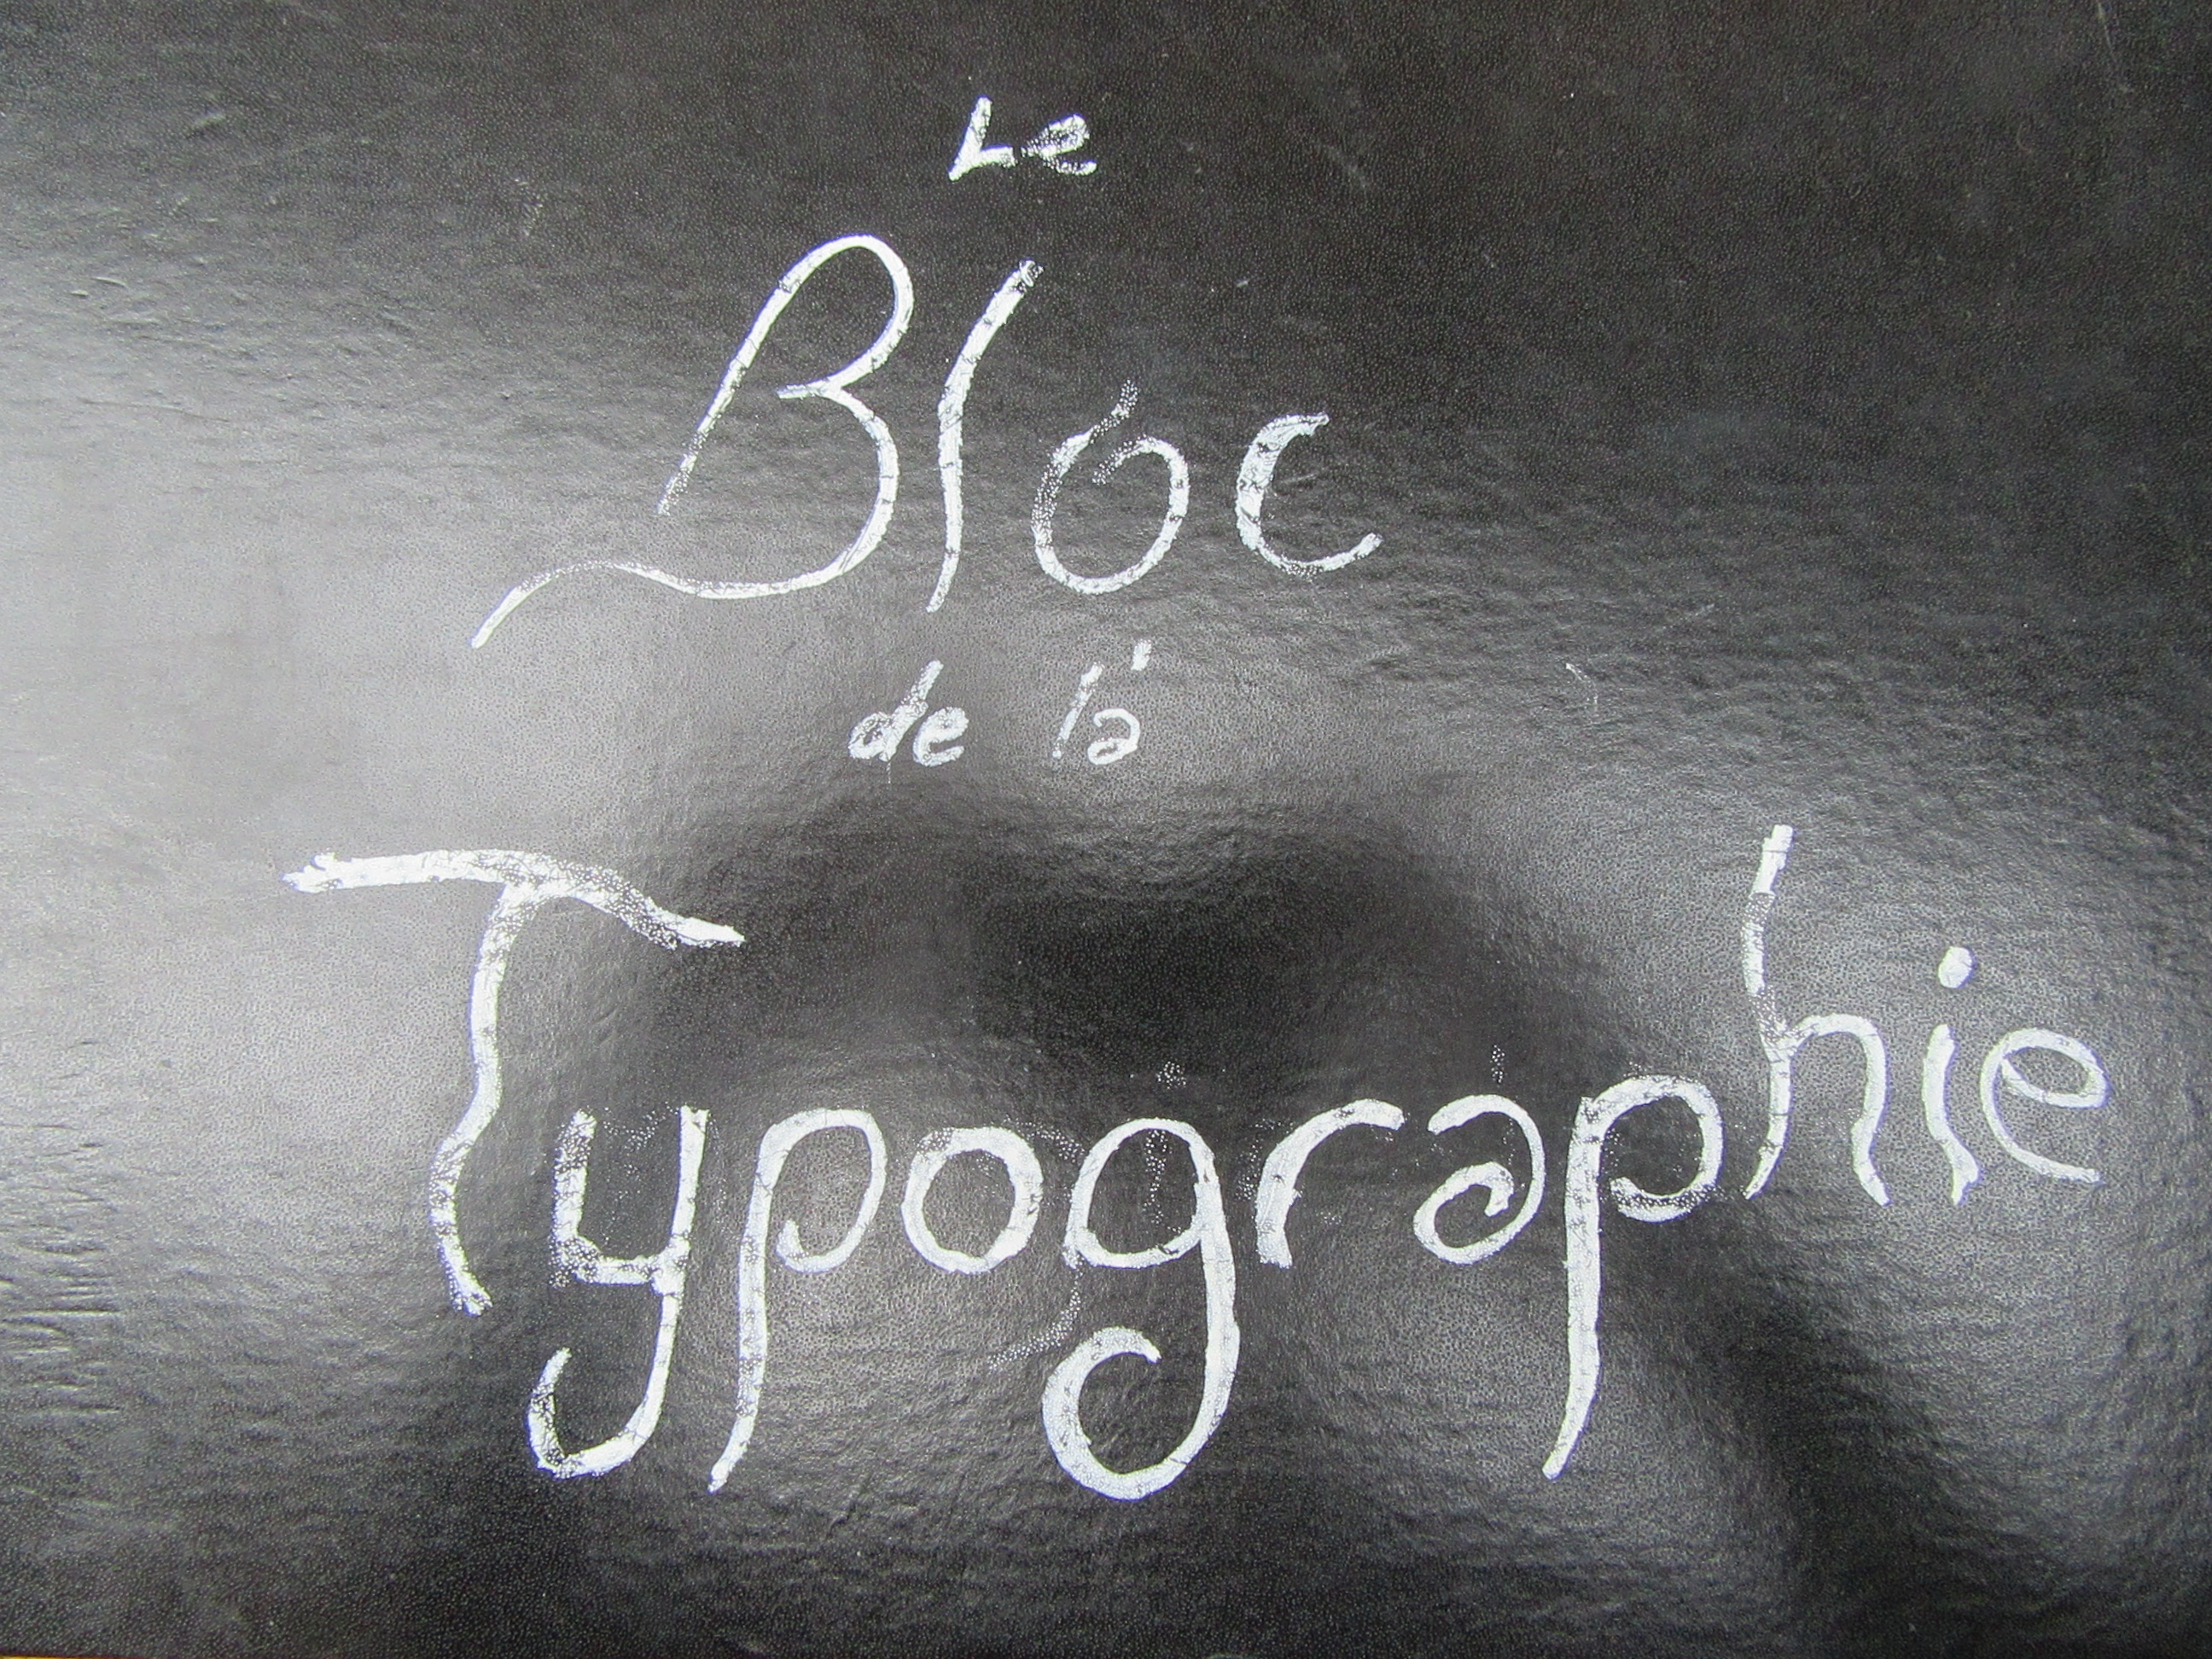 Le
Bloc
de la
Typographie